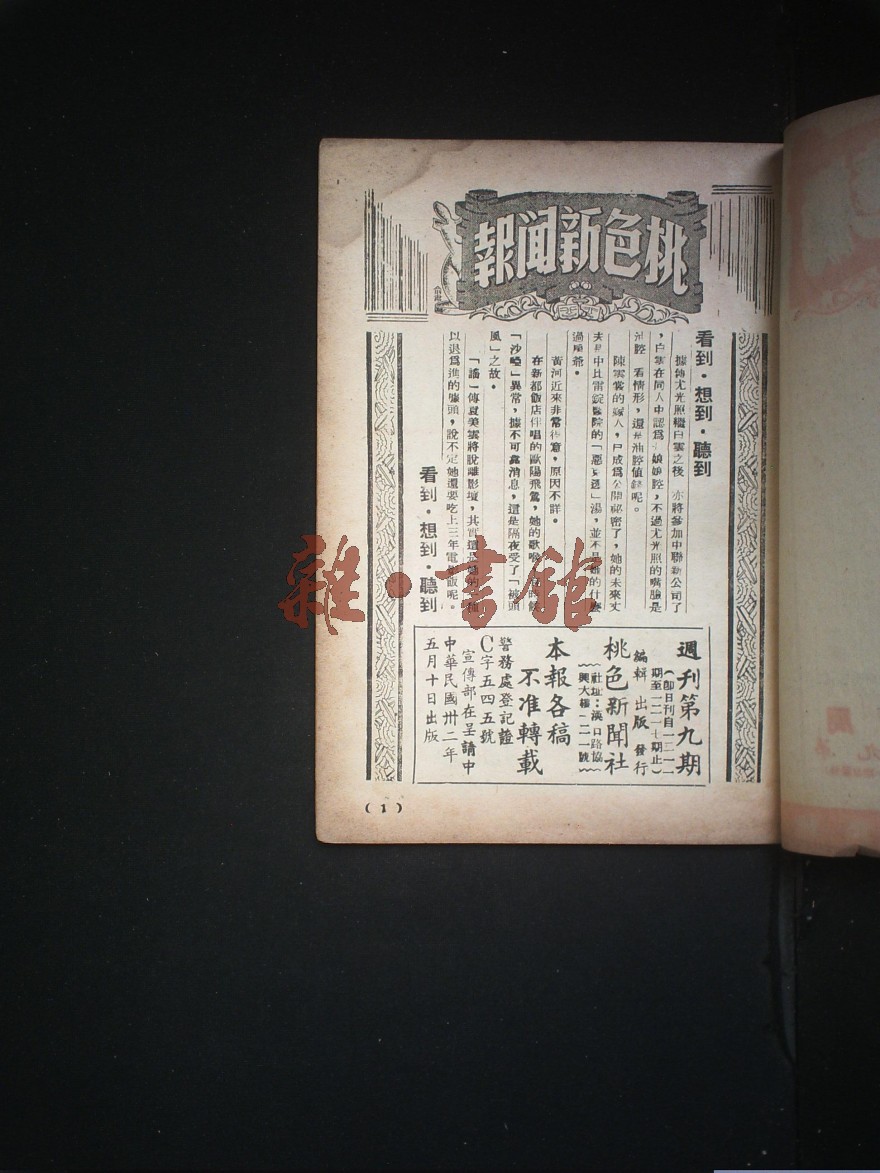 桃色新聞報
看到・想到・聽到
據傳尤光照繼白雲之後 亦將參加中聯新公司了
，白雲在同人中認爲 娘娘腔，不過尤光照的嘴臉是
油腔 看情形，還是油腔值錢呢。
陳雲裳的嫁人，已成爲公開祕密了，她的未來丈
夫是中比雷錠醫院的「 」湯，並不是 的什麼
過房爺。
黃河近來非常 ，原因不詳。
在新都飯店伴唱的歐陽飛鶯，她的歌喉
「沙啞」異常，據不可靠消息，這是隔夜受了「被頭
風」之故。
「謠」傳夏美雲將脫離影壇，其實這是她的一種
以退爲進的噱頭，說不定她還要吃上三年電影飯呢。
看到・想到・聽到
週刊第九期
（即日刊自一二一一
期至一二一七期止）
編輯 出版 發行
桃色新聞社
社址：漢口路協
興大樓一二一號
本報各稿
不准轉載
警務處登記證
C字五四五號
宣傳部在呈請中
中華民國卅二年
五月十日出版
(1)
雜・書館